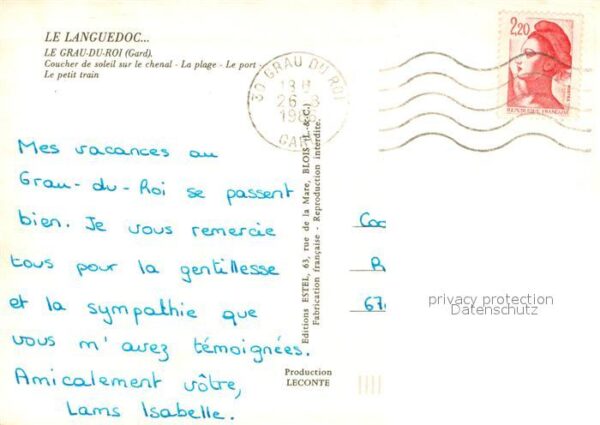 LE LANGUEDOC...
LE GRAU-DU-ROI (Gard).
Coucher de soleil sur le chenal - La plage - Le port -
Le petit train
30 GRAU DU ROI
18 H
26 - 8
GARD
2,20
REPUBLIQUE FRANÇAISE
Mes vacances au
Grau-du-Roi se passent
bien. Je vous remercie
tous pour la gentillesse
et la sympathie que
vous m'avez témoignées.
Amicalement vôtre,
Lams Isabelle.
Editions ESTEL, 63, rue de la Mare, BLOIS (L. & C.)
Fabrication française - Reproduction interdite.
Production
LECONTE
R
67
privacy protection
Datenschutz